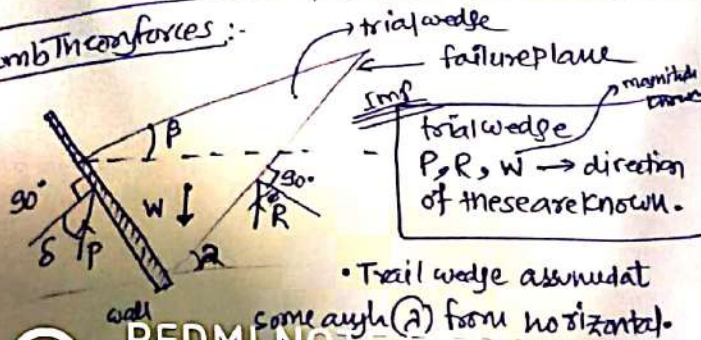 mb Theory forces :-
→ trial wedge
failure plane
Imp
magnitude known
trial wedge
P, R, W → direction
of these are known.
β
90°
δ
P
W ↓
R
90°
λ
wall
• Trail wedge assumed at
some angle (λ) from horizontal.
REDMI NOTE